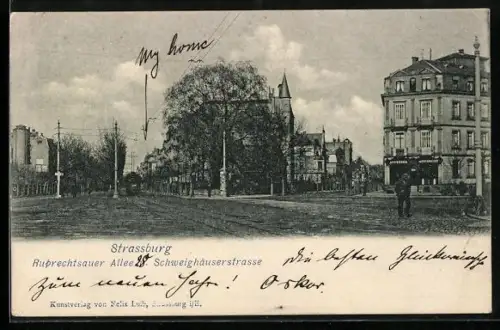 My home
Strassburg
Ruprechtsauer Allee 28. Schweighäuserstrasse
Die besten Glückwünsche
Zum neuen Jahr! Oskar.
Kunstverlag von Felix Luib, Strassburg i/E.